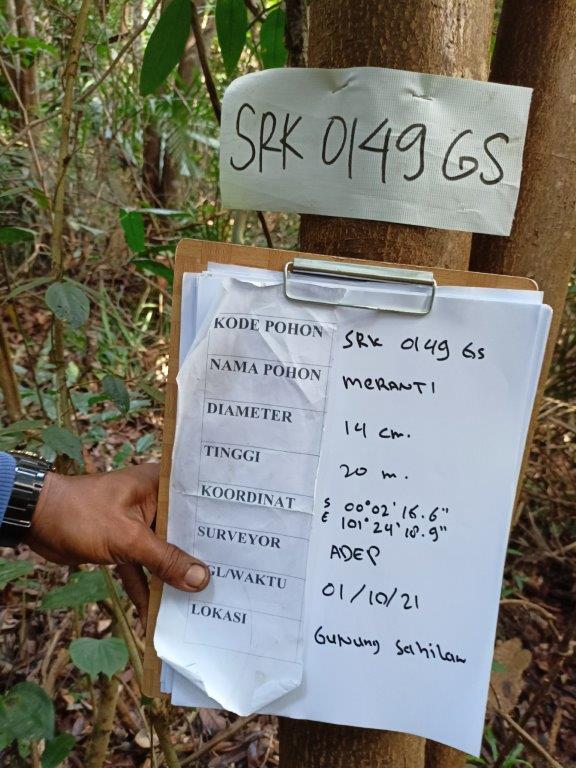 SRK 0149 GS
KODE POHON SRK 0149 GS
NAMA POHON MERANTI
DIAMETER 14 cm.
TINGGI 20 m.
KOORDINAT S 00°02'16.6"
E 101°24'18.9"
SURVEYOR ADEP
GL/WAKTU 01/10/21
LOKASI Gunung Sahilan